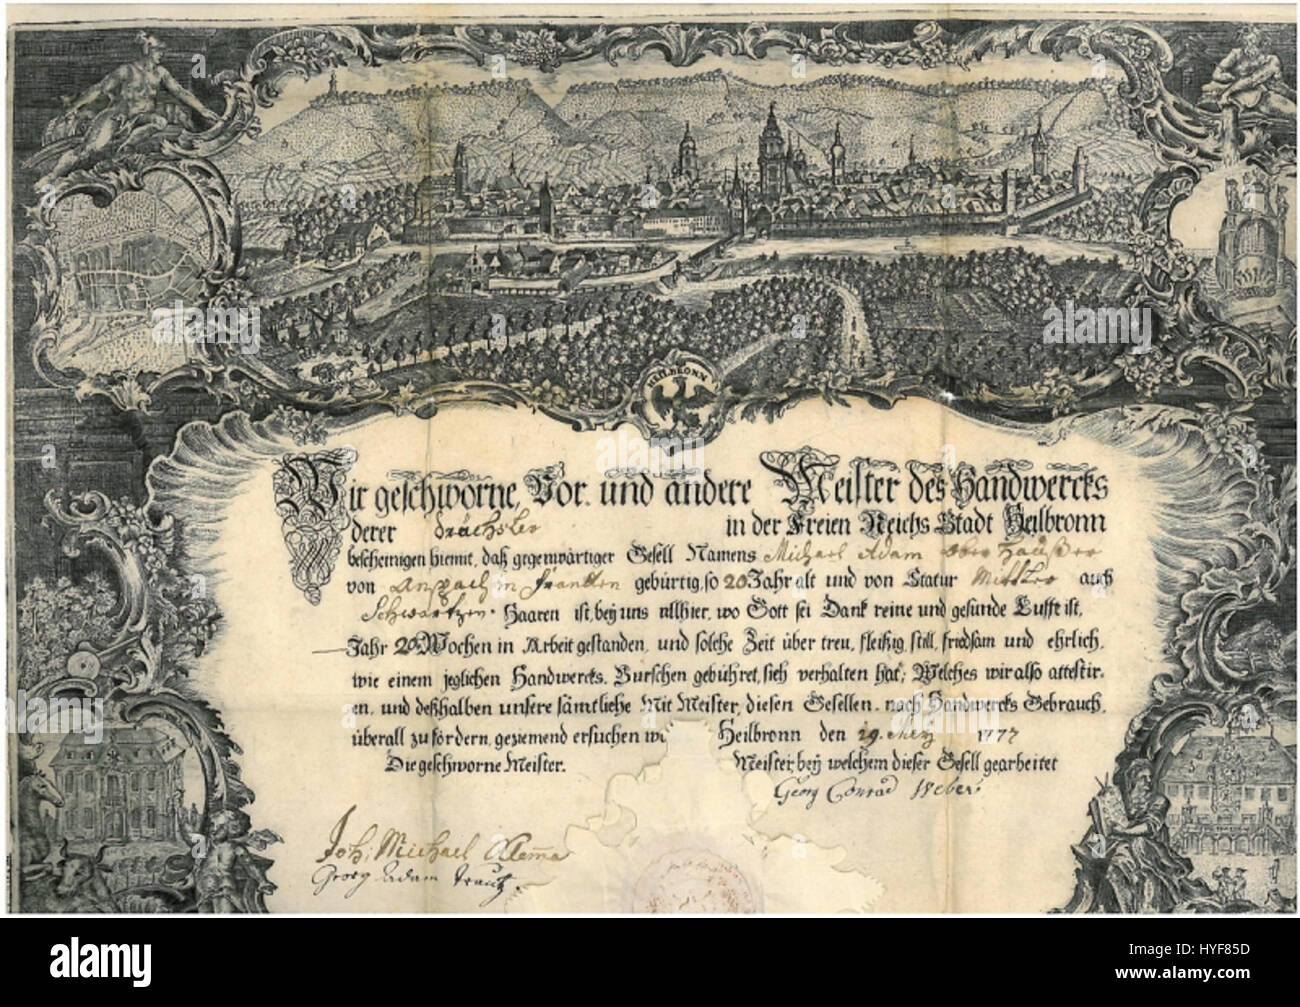 HEILBRONN
Wir geschworne, Vor. und andere Meister des Handwercks
derer Drächsler in der Freien Reichs Stadt Heilbronn
bescheinigen hiemit, daß gegenwärtiger Gesell Namens Michael Adam Oberhaußer
von Anspach in Francken gebürtig, so 20 Jahr alt und von Statur Mittler auch
Schwartzen Haaren ist, bey uns allhier, wo Gott sei Dank reine und gesunde Lufft ist,
Jahr 20 Wochen in Arbeit gestanden, und solche Zeit über treu, fleißig, still, friedsam und ehrlich,
wie einem jeglichen Handwercks. Burschen gebühret, sich verhalten hat; Welches wir also attestir-
en, und deßhalben unsere sämtliche Mit Meister, diesen Gesellen, nach Handwercks Gebrauch,
überall zu fördern, geziemend ersuchen Heilbronn den 19. 1777
Die geschworne Meister. Meister, bey welchem dieser Gesell gearbeitet
Georg Conrad Weber
Joh: Michael
Georg Adam Trautz.
alamy
a
alamy stock photo
HYF85D
www.alamy.com